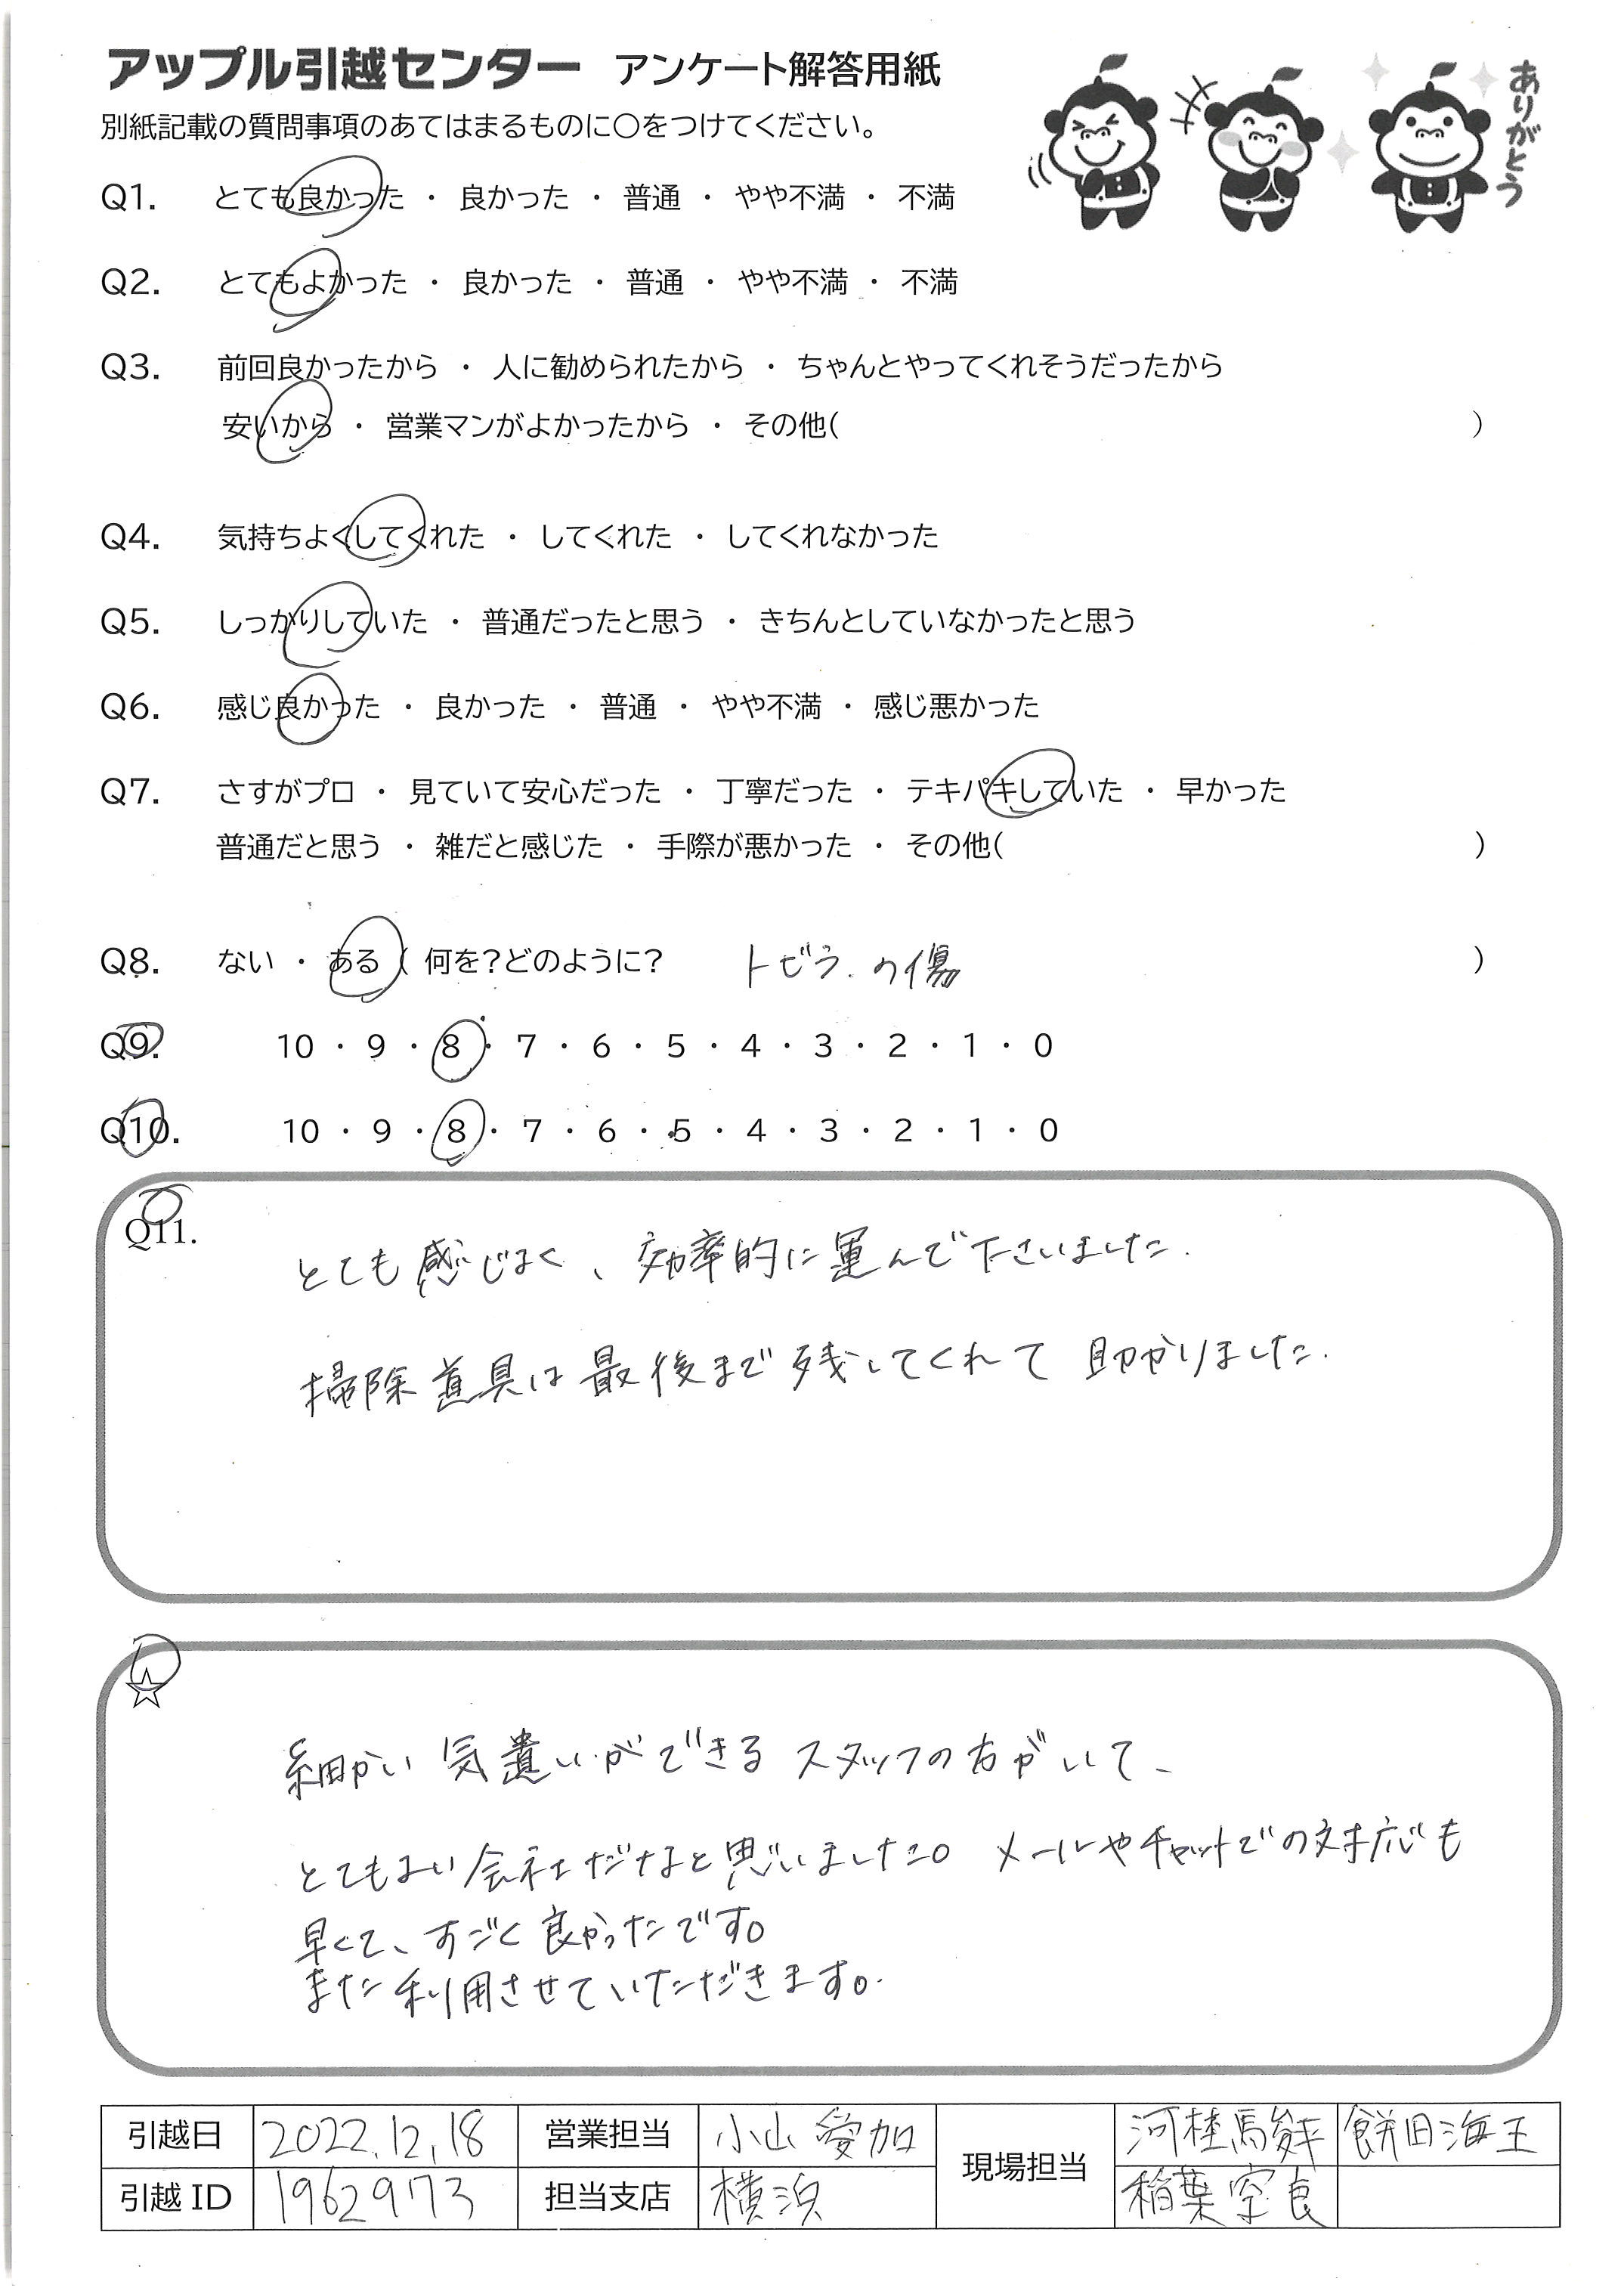 アップル引越センター アンケート解答用紙
ありがとう
別紙記載の質問事項のあてはまるものに〇をつけてください。
Q1. とても良かった ・ 良かった ・ 普通 ・ やや不満 ・ 不満
Q2. とてもよかった ・ 良かった ・ 普通 ・ やや不満 ・ 不満
Q3. 前回良かったから ・ 人に勧められたから ・ ちゃんとやってくれそうだったから
安いから ・ 営業マンがよかったから ・ その他( )
Q4. 気持ちよくしてくれた ・ してくれた ・ してくれなかった
Q5. しっかりしていた ・ 普通だったと思う ・ きちんとしていなかったと思う
Q6. 感じ良かった ・ 良かった ・ 普通 ・ やや不満 ・ 感じ悪かった
Q7. さすがプロ ・ 見ていて安心だった ・ 丁寧だった ・ テキパキしていた ・ 早かった
普通だと思う ・ 雑だと感じた ・ 手際が悪かった ・ その他( )
Q8. ない ・ ある ( 何を?どのように? トビラ.の傷 )
Q9. 10 ・ 9 ・ 8 ・ 7 ・ 6 ・ 5 ・ 4 ・ 3 ・ 2 ・ 1 ・ 0
Q10. 10 ・ 9 ・ 8 ・ 7 ・ 6 ・ 5 ・ 4 ・ 3 ・ 2 ・ 1 ・ 0
Q11.
とても感じよく、効率的に運んで下さいました.
掃除道具は最後まで残してくれて 助かりました.
☆
細かい気遣いができるスタッフの方がいて、
とてもよい会社だなと思いました。メールやチャットでの対応も
早くて、すごく良かったです。
また利用させていただきます。
引越日 2022.12.18 営業担当 小山 愛加 現場担当 餅田海王
引越ID 1962973 担当支店 横浜 稲葉空良